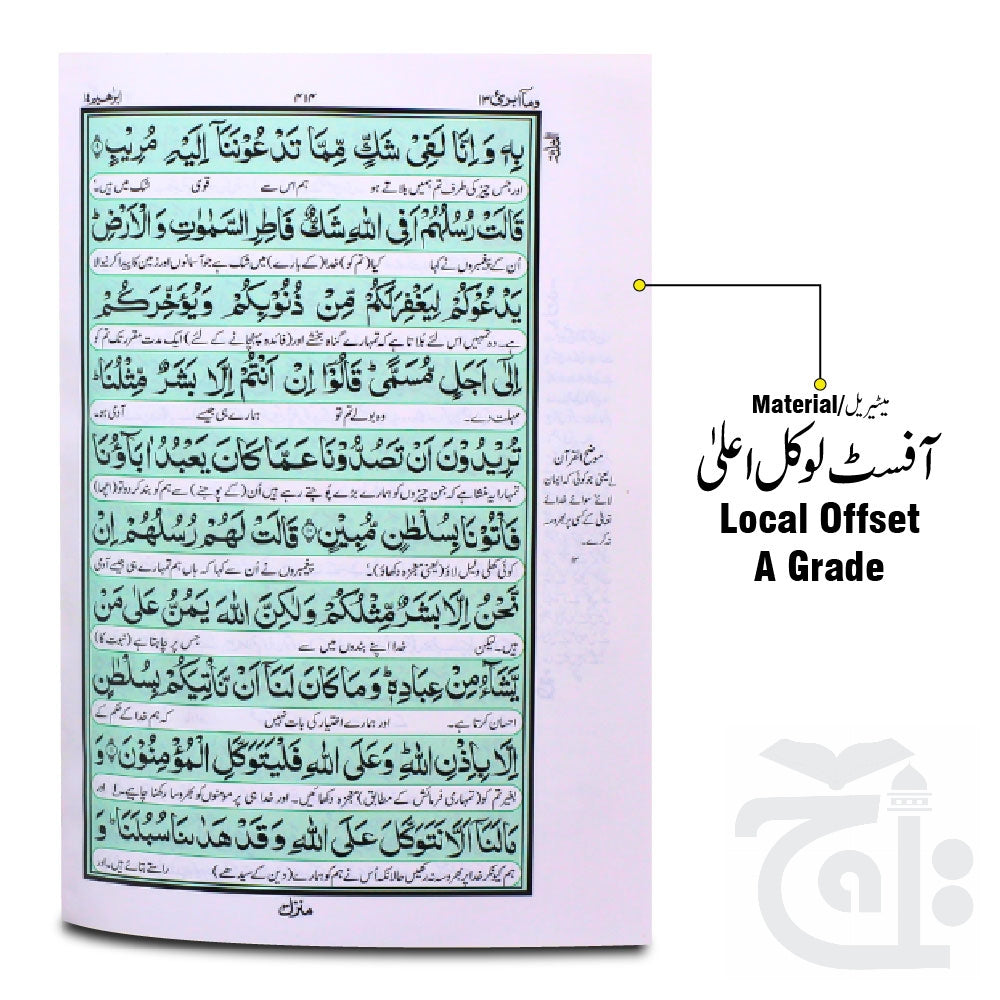 وما ابرئ ۱۳
۴۱۴
ابراهیم ۱۴
بِهٖ وَ اِنَّا لَفِیْ شَكٍّ مِّمَّا تَدْعُوْنَنَاۤ اِلَیْهِ مُرِیْبٍ
اور جس چیز کی طرف تم ہمیں بلاتے ہو ہم اس سے قوی شک میں ہیں۔
قَالَتْ رُسُلُهُمْ اَفِی اللّٰهِ شَكٌّ فَاطِرِ السَّمٰوٰتِ وَ الْاَرْضِؕ
اُن کے پیغمبروں نے کہا کیا (تم کو) خدا (کے بارے) میں شک ہے جو آسمانوں اور زمین کا پیدا کرنیوالا
یَدْعُوْكُمْ لِیَغْفِرَ لَكُمْ مِّنْ ذُنُوْبِكُمْ وَیُؤَخِّرَكُمْ
ہے۔ وہ تمہیں اس لئے بلاتا ہے کہ تمہارے گناہ بخشے اور (فائدہ پہنچانے کے لئے) ایک مدت مقرر تک تم کو
اِلٰۤی اَجَلٍ مُّسَمًّیؕ قَالُوْۤا اِنْ اَنْتُمْ اِلَّا بَشَرٌ مِّثْلُنَاؕ
مہلت دے۔ وہ بولے تم تو ہمارے ہی جیسے آدمی ہو۔
تُرِیْدُوْنَ اَنْ تَصُدُّوْنَا عَمَّا كَانَ یَعْبُدُ اٰبَآؤُنَا
تمہارا یہ منشا ہے کہ جن چیزوں کو ہمارے بڑے پوجتے رہے ہیں اُن (کے پوجنے) سے ہم کو بند کر دو تو (اچھا)
فَاْتُوْنَا بِسُلْطٰنٍ مُّبِیْنٍ قَالَتْ لَهُمْ رُسُلُهُمْ اِنْ
کوئی کھلی دلیل لاؤ (یعنی معجزہ دکھاؤ)۔ پیغمبروں نے اُن سے کہا کہ ہاں ہم تمہارے ہی جیسے آدمی
نَّحْنُ اِلَّا بَشَرٌ مِّثْلُكُمْ وَلٰكِنَّ اللّٰهَ یَمُنُّ عَلٰی مَنْ
ہیں۔ لیکن خدا اپنے بندوں میں سے جس پر چاہتا ہے (نبوت کا)
یَّشَآءُ مِنْ عِبَادِهٖؕ وَ مَا كَانَ لَنَاۤ اَنْ نَّاْتِیَكُمْ بِسُلْطٰنٍ
احسان کرتا ہے۔ اور ہمارے اختیار کی بات نہیں کہ ہم خدا کے حکم کے
اِلَّا بِاِذْنِ اللّٰهِؕ وَ عَلَی اللّٰهِ فَلْیَتَوَكَّلِ الْمُؤْمِنُوْنَ وَ
بغیر تم کو (تمہاری فرمائش کے مطابق) معجزہ دکھائیں۔ اور خدا ہی پر مومنوں کو بھروسا رکھنا چاہیے۔ اور
مَا لَنَاۤ اَلَّا نَتَوَكَّلَ عَلَی اللّٰهِ وَ قَدْ هَدٰىنَا سُبُلَنَاؕ وَ
ہم کیونکر خدا پر بھروسہ نہ رکھیں حالانکہ اُس نے ہم کو ہمارے (دین کے سیدھے) راستے بتائے ہیں۔ اور
منزل
موضح القرآن
یعنی جو کوئی کہ ایمان
لائے سوائے خدائے
تعالی کے کسی پر بھروسہ
نہ کرے۔
۱۲
میٹیریل/Material
آفسٹ لوکل اعلیٰ
Local Offset
A Grade
تاج